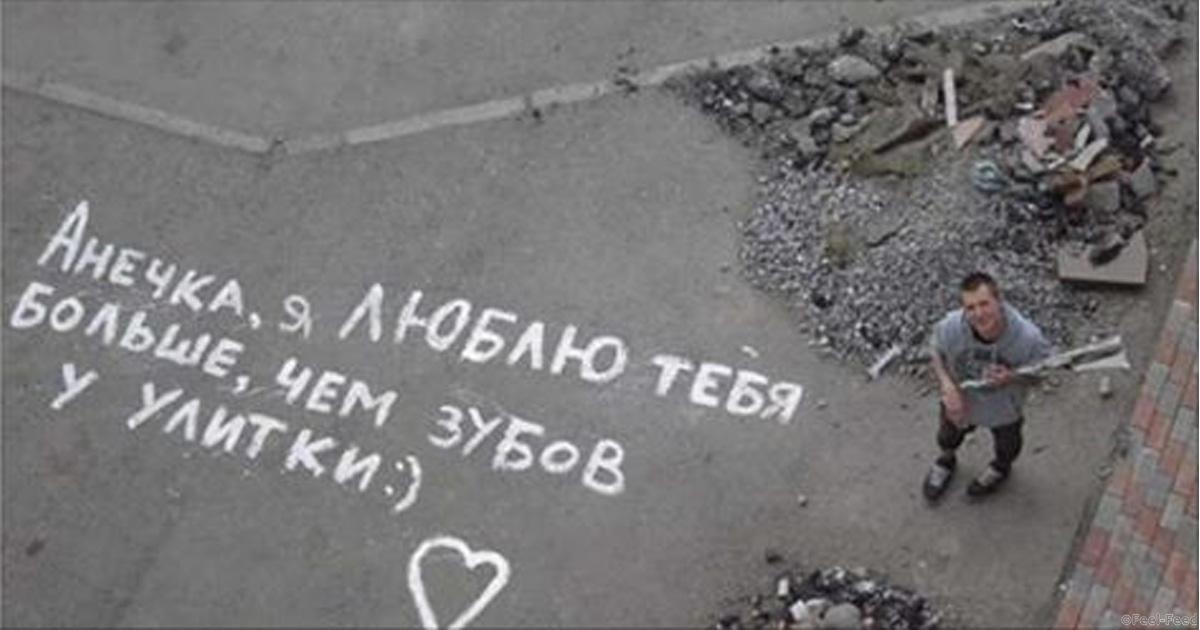 Анечка, я люблю тебя
больше, чем зубов
у улитки:)
©Feel-Feed